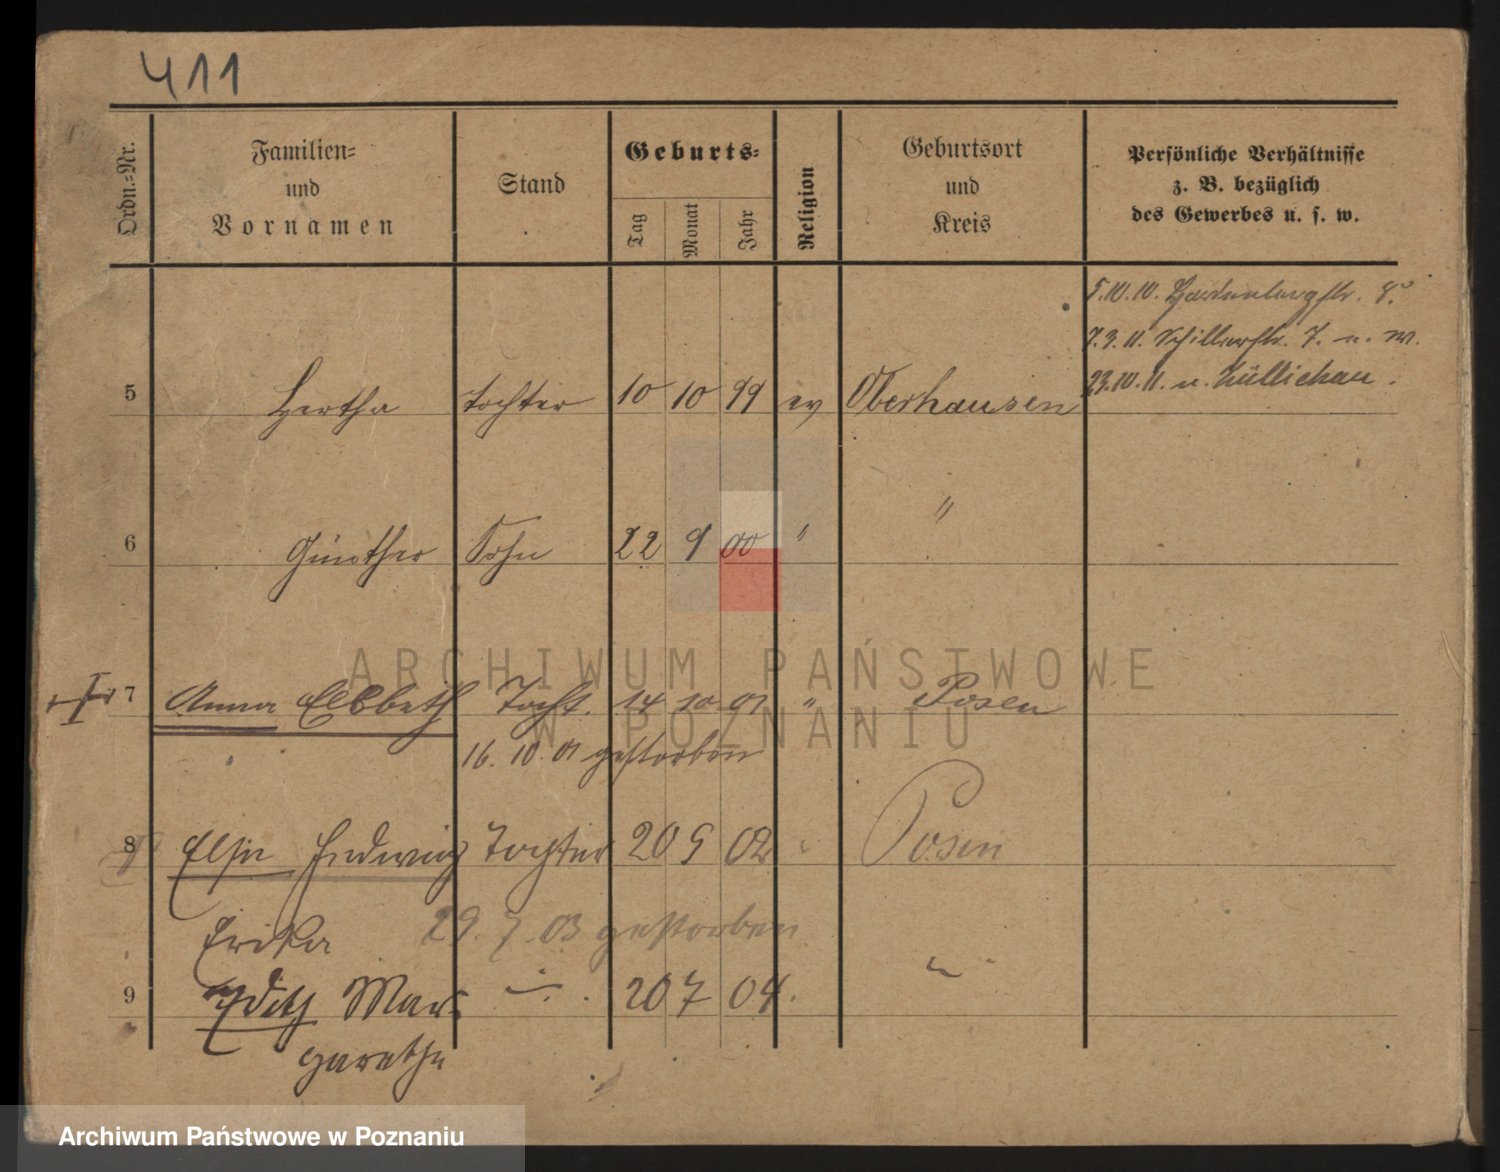 411
Ordn.-Nr.
Familien-
und
Vornamen
Stand
Geburts-
Tag
Monat
Jahr
Religion
Geburtsort
und
Kreis
Persönliche Verhältnisse
z. B. bezüglich
des Gewerbes u. s. w.
5.10.10. Hardenbergstr. 8.
7.3.11. Schillerstr. 7. n. W.
23.10.11. n. Züllichau.
5 Hertha Tochter 10 10 99 ev Oberhausen
6 Günther Sohn 22 9 00 " "
7 Anna Elsbeth Tocht. 14 10 01 " Posen
16. 10. 01 gestorben
8 Else Hedwig Tochter 20 9 02 " Posen
Erika 29. 7. 03 gestorben
9 Edith Mar- " 20 7 04. "
garethe
ARCHIWUM PAŃSTWOWE
W POZNANIU
Archiwum Państwowe w Poznaniu